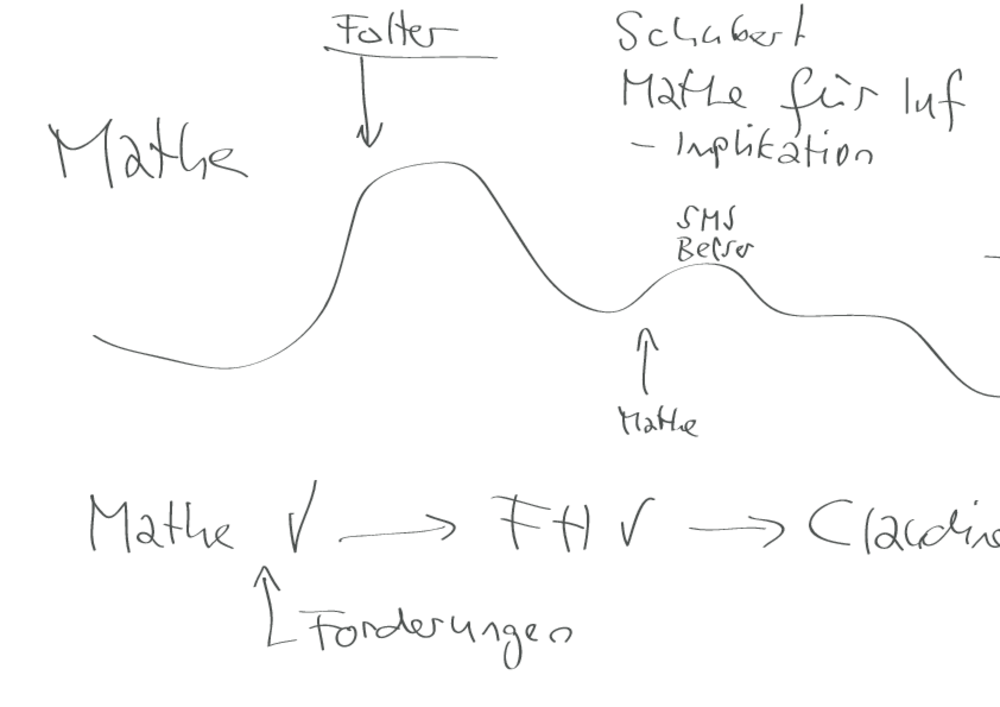 Folter
Schubert
Mathe für Inf
- Implikation
Mathe
SMS
Mathe
Mathe ✓ → FH ✓ →
Forderungen